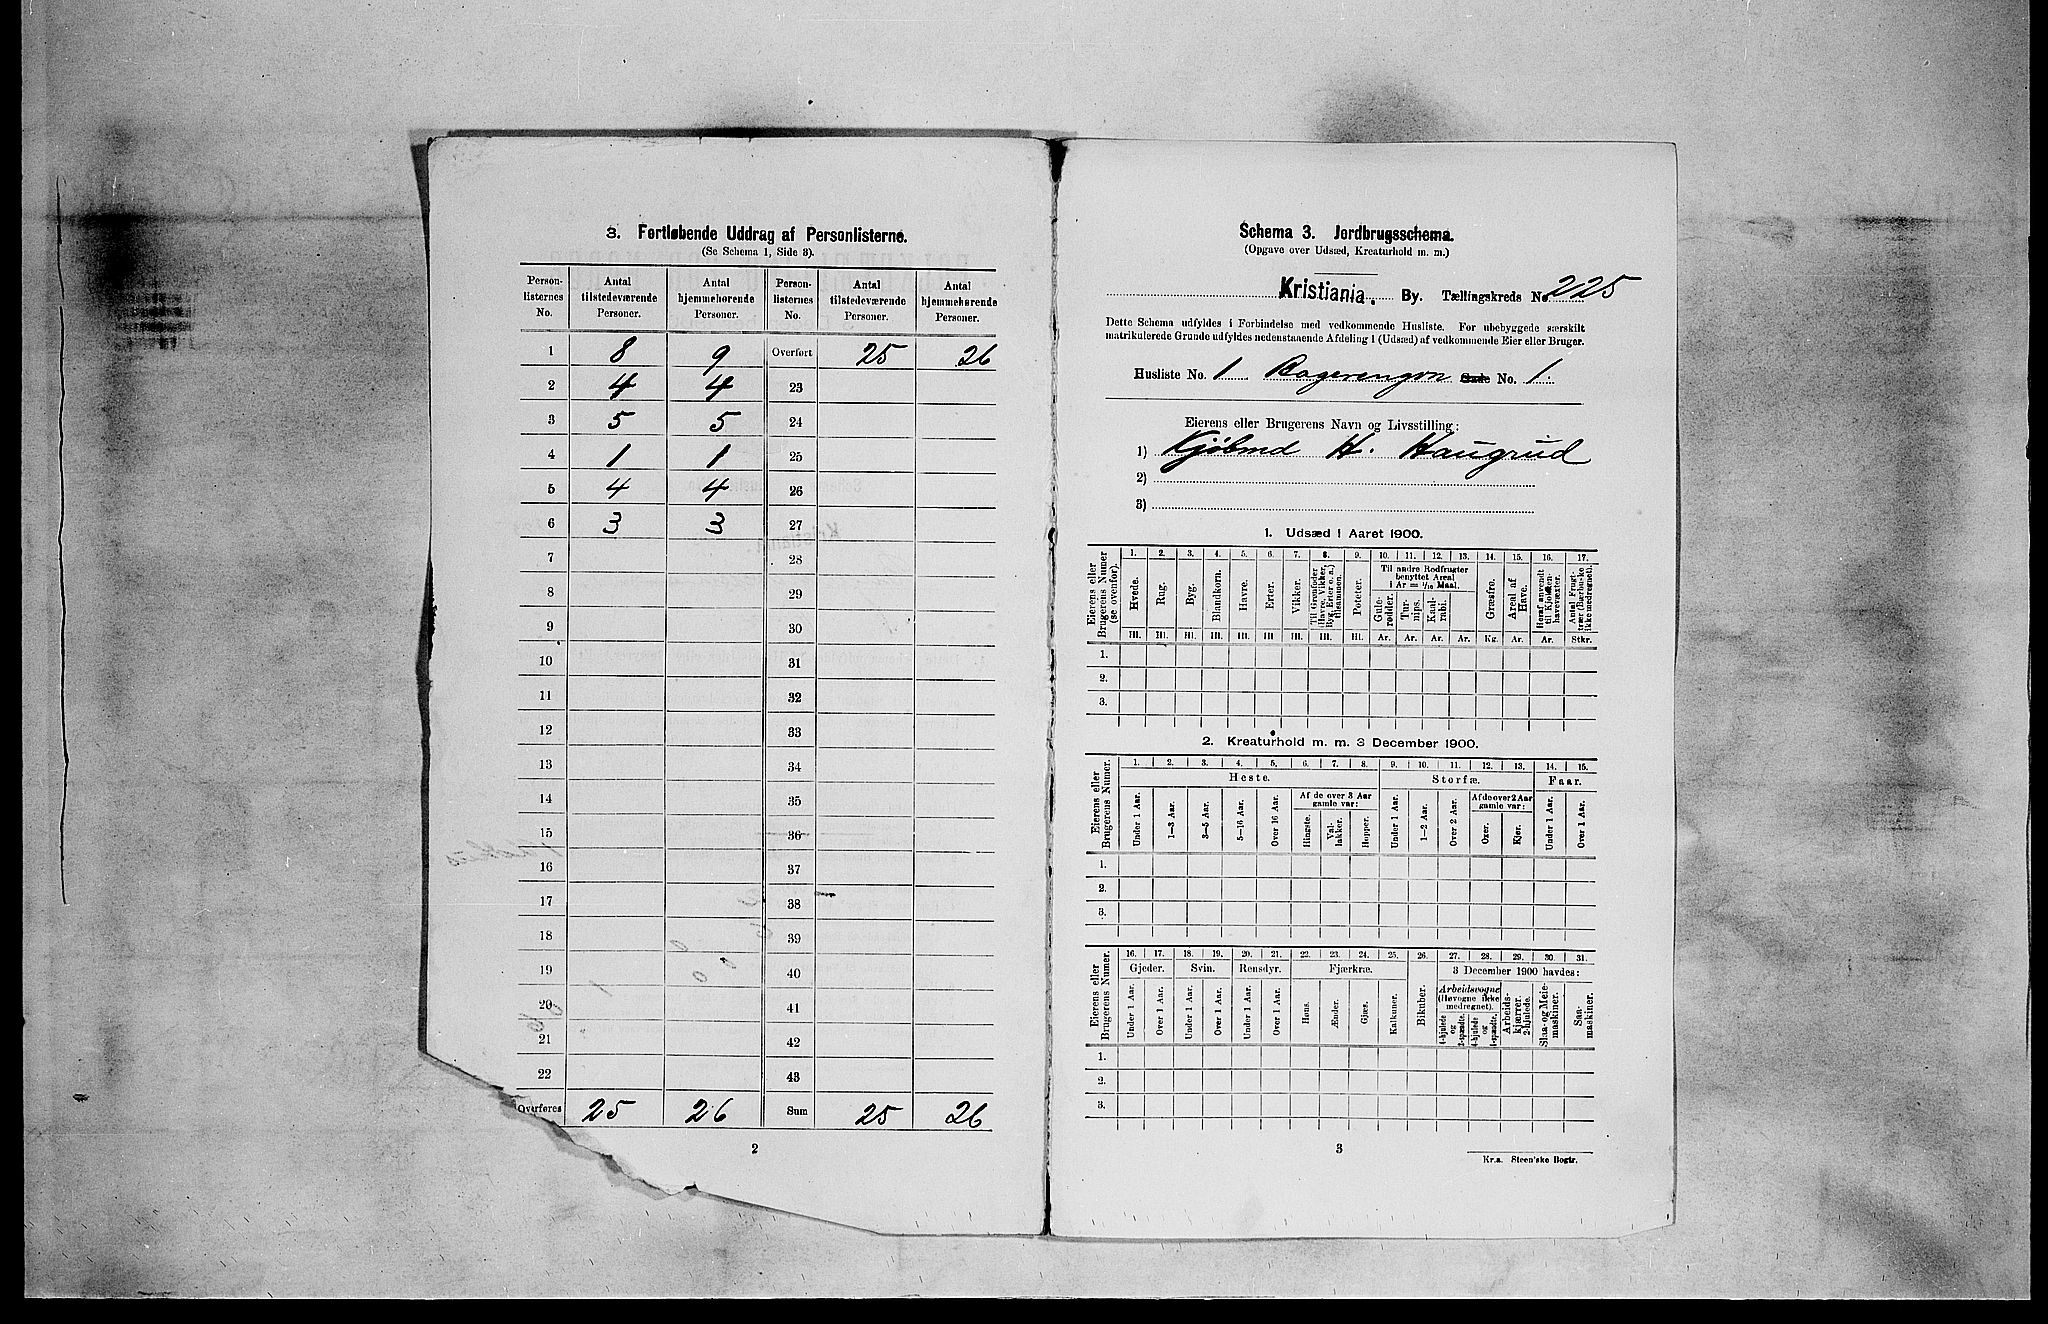 3. Fortløbende Uddrag af Personlisterne.
(Se Schema 1, Side 3).
Person-listernes No. Antal tilstedeværende Personer. Antal hjemmehørende Personer. Person-listernes No. Antal tilstedeværende Personer. Antal hjemmehørende Personer.
1 8 9 Overført 25 26
2 4 4 23
3 5 5 24
4 1 1 25
5 4 4 26
6 3 3 27
7 28
8 29
9 30
10 31
11 32
12 33
13 34
14 35
15 36
16 37
17 38
18 39
19 40
20 41
21 42
22 43
Overføres 25 26 Sum 25 26
2
Schema 3. Jordbrugsschema.
(Opgave over Udsæd, Kreaturhold m. m.)
Kristiania. By. Tællingskreds No. 225
Dette Schema udfyldes i Forbindelse med vedkommende Husliste. For ubebyggede særskilt
matrikulerede Grunde udfyldes nedenstaaende Afdeling 1 (Udsæd) af vedkommende Eier eller Bruger.
Husliste No. 1 Bagerengen Gade No. 1.
Eierens eller Brugerens Navn og Livsstilling:
1) Kjøbmd H. Haugrud
2)
3)
1. Udsæd i Aaret 1900.
Eierens eller Brugerens Numer (se ovenfor).
1. 2. 3. 4. 5. 6. 7. 8. 9. 10. 11. 12. 13. 14. 15. 16. 17.
Hvede. Rug. Byg. Blandkorn. Havre. Erter. Vikker. Til Grønfoder (Havre, Vikker, Byg, Erter o. a.) tilsammen. Poteter. Til andre Rodfrugter benyttet Areal 1 Ar = 1/10 Maal. Gule-rødder. Tur-nips. Kaal-rabi. Græsfrø. Areal af Have. Heraf anvendt til Kjøkken-havevæxter. Antal Frugt-trær (Bærbuske ikke medregnet).
Hl. Hl. Hl. Hl. Hl. Hl. Hl. Hl. Hl. Ar. Ar. Ar. Ar. Kg. Ar. Ar. Stkr.
1.
2.
3.
2. Kreaturhold m. m. 3 December 1900.
Eierens eller Brugerens Numer.
1. 2. 3. 4. 5. 6. 7. 8. 9. 10. 11. 12. 13. 14. 15.
Heste. Storfæ. Faar.
Under 1 Aar. 1—3 Aar. 3—5 Aar. 5—16 Aar. Over 16 Aar. Af de over 3 Aar gamle var: Hingste. Val-lakker. Hopper. Under 1 Aar. 1—2 Aar. Over 2 Aar. Af de over 2 Aar gamle var: Oxer. Kjør. Under 1 Aar. Over 1 Aar.
1.
2.
3.
Eierens eller Brugerens Numer.
16. 17. 18. 19. 20. 21. 22. 23. 24. 25. 26. 27. 28. 29. 30. 31.
Gjeder. Svin. Rensdyr. Fjærkræ. 3 December 1900 havdes:
Under 1 Aar. Over 1 Aar. Under 1 Aar. Over 1 Aar. Under 1 Aar. Over 1 Aar. Høns. Ænder. Gjæs. Kalkuner. Bikuber. Arbeidsvogne (Høvogne ikke medregnet). 4-hjulede og 2-spændte. 4-hjulede og 1-spændte. Arbeids-kjærrer. 2-hjulede. Slaa- og Meie-maskiner. Saa-maskiner.
1.
2.
3.
3
Kr.a. Steen'ske Bogtr.